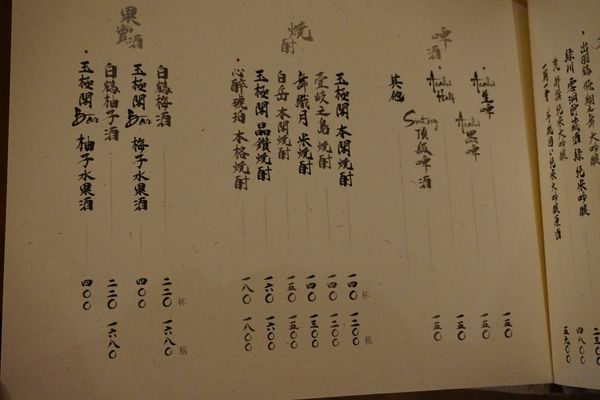 綠川 雪洞貯藏酒 綠 純米吟釀 四八〇〇
五九〇〇
啤酒
Asahi 生啤 一五〇
Asahi 黑啤 一五〇
Asahi Half 一五〇
Suntory 頂級啤酒 一五〇
其他
焼酎
杯 瓶
玉極閣 本閣燒酎 一四〇 一二〇〇
壹岐之島 燒酎 一四〇 一二〇〇
舞鐵月 米燒酎 一四〇 一三〇〇
白岳 本閣燒酎 一五〇 一五〇〇
玉極閣 晶鑽燒酎 一六〇 一六〇〇
心醉琥珀 本格燒酎 一八〇 一八〇〇
果實酒
杯 瓶
白鶴梅酒 二二〇 一六八〇
玉極閣 Bar 梅子水果酒 四〇〇
白鶴柚子酒 二二〇 一六八〇
玉極閣 Bar 柚子水果酒 四〇〇